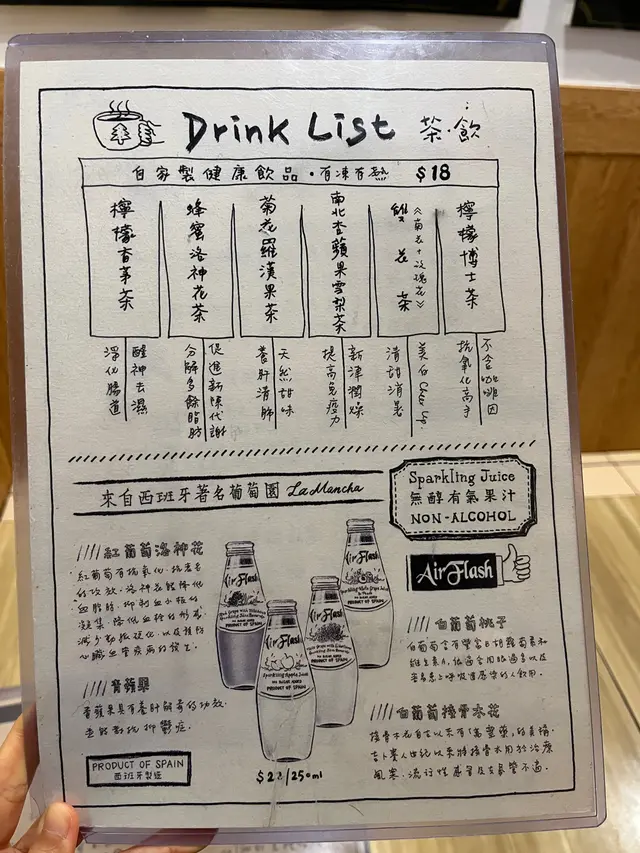 Drink List 茶·飲
自家製健康飲品·有凍有熱 $18
檸檬香茅茶
蜂蜜洛神花茶
菊花羅漢果茶
南北杏蘋果雪梨茶
雙花茶
《南花+玫瑰花》
檸檬博士茶
醒神去濕
淨化腸道
促進新陳代謝
分解多餘脂肪
天然甜味
養肝清肺
新津潤燥
提高免疫力
美白
清甜消暑
不含咖啡因
抗氧化高手
來自西班牙著名葡萄園 La Mancha
Sparkling Juice
無醇有氣果汁
NON-ALCOHOL
AirFlash
紅葡萄洛神花
紅葡萄有抗氧化、抗衰老
的功效。洛神花能降低
血脂肪,抑制血小板的
凝集,降低血栓的形成,
減少動脈硬化,以及預防
心臟血管疾病的發生。
青蘋果
青蘋果具有養肝解毒的功效,
去能對抗抑鬱症。
PRODUCT OF SPAIN
西班牙製造
AirFlash
AirFlash
AirFlash
Sparkling Apple Juice
NO SUGAR ADDED
PRODUCT OF SPAIN
$22/250ml
白葡萄桃子
白葡萄含有豐富
維生素
白葡萄接骨木花
接骨木花自古以來有
吉卜賽人世紀以來將接骨木用於治療
風寒、流行性感冒及支氣管不適。